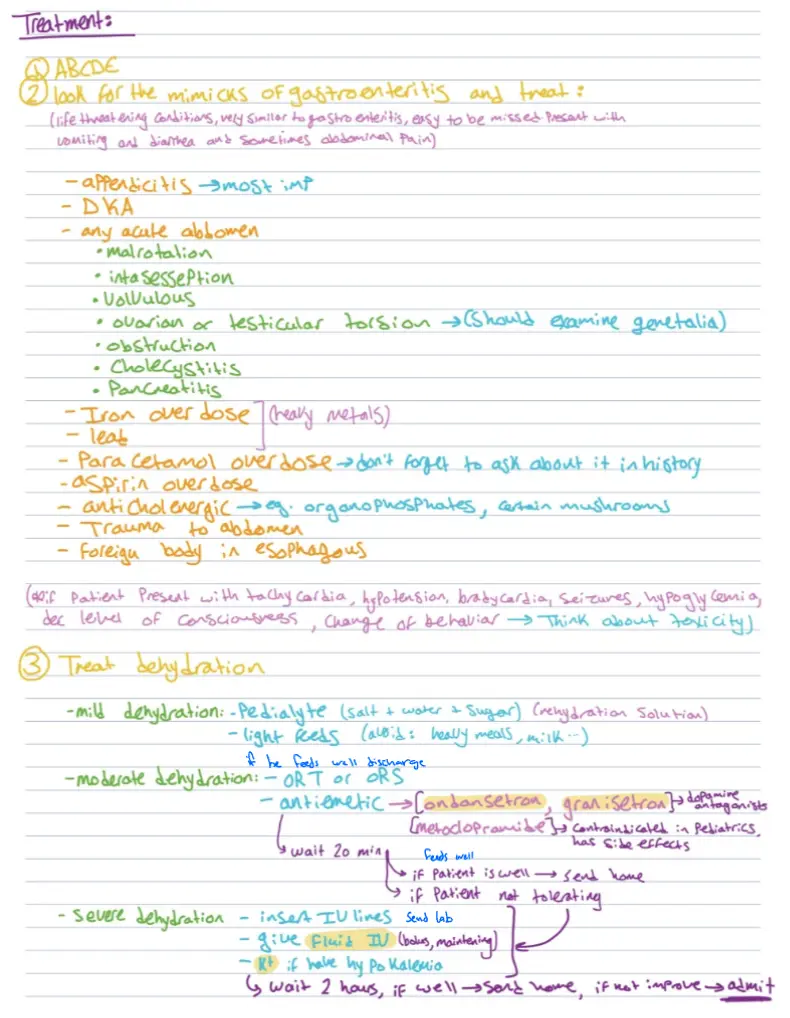 Treatment:
① ABCDE
② look for the mimicks of gastroenteritis and treat:
(life threatening conditions, very similar to gastroenteritis, easy to be missed Present with
vomiting and diarrhea and sometimes abdominal Pain)
- appendicitis → most imp
- DKA
- any acute abdomen
• malrotation
• intasesseption
• Volvulous
• ovarian or testicular torsion → (Should examine genetalia)
• obstruction
• Cholecystitis
• Pancreatitis
- Iron overdose ] (heavy metals)
- lead
- Paracetamol overdose → don't forget to ask about it in history
- aspirin overdose
- anticholenergic → eg. organophosphates, certain mushrooms
- Trauma to abdomen
- foreign body in esophagous
(if Patient Present with tachycardia, hypotension, bradycardia, seizures, hypoglycemia,
dec level of consciousness, change of behavior → Think about toxicity)
③ Treat dehydration
- mild dehydration: - Pedialyte (salt + water + Sugar) (rehydration Solution)
- light feeds (avoid: heavy meals, milk...)
if he feeds well discharge
- moderate dehydration: - ORT or ORS
- antiemetic → [ondansetron, granisetron] → dopamine antagonists
[metoclopramide] → contraindicated in Pediatrics, has side effects
↳ wait 20 min
feeds well
↳ if Patient is well → send home
↳ if Patient not tolerating
- severe dehydration - insert IV lines send lab
- give fluid IV (bolus, maintening)
- K+ if have hypokalemia
↳ wait 2 hours, if well → send home, if not improve → admit